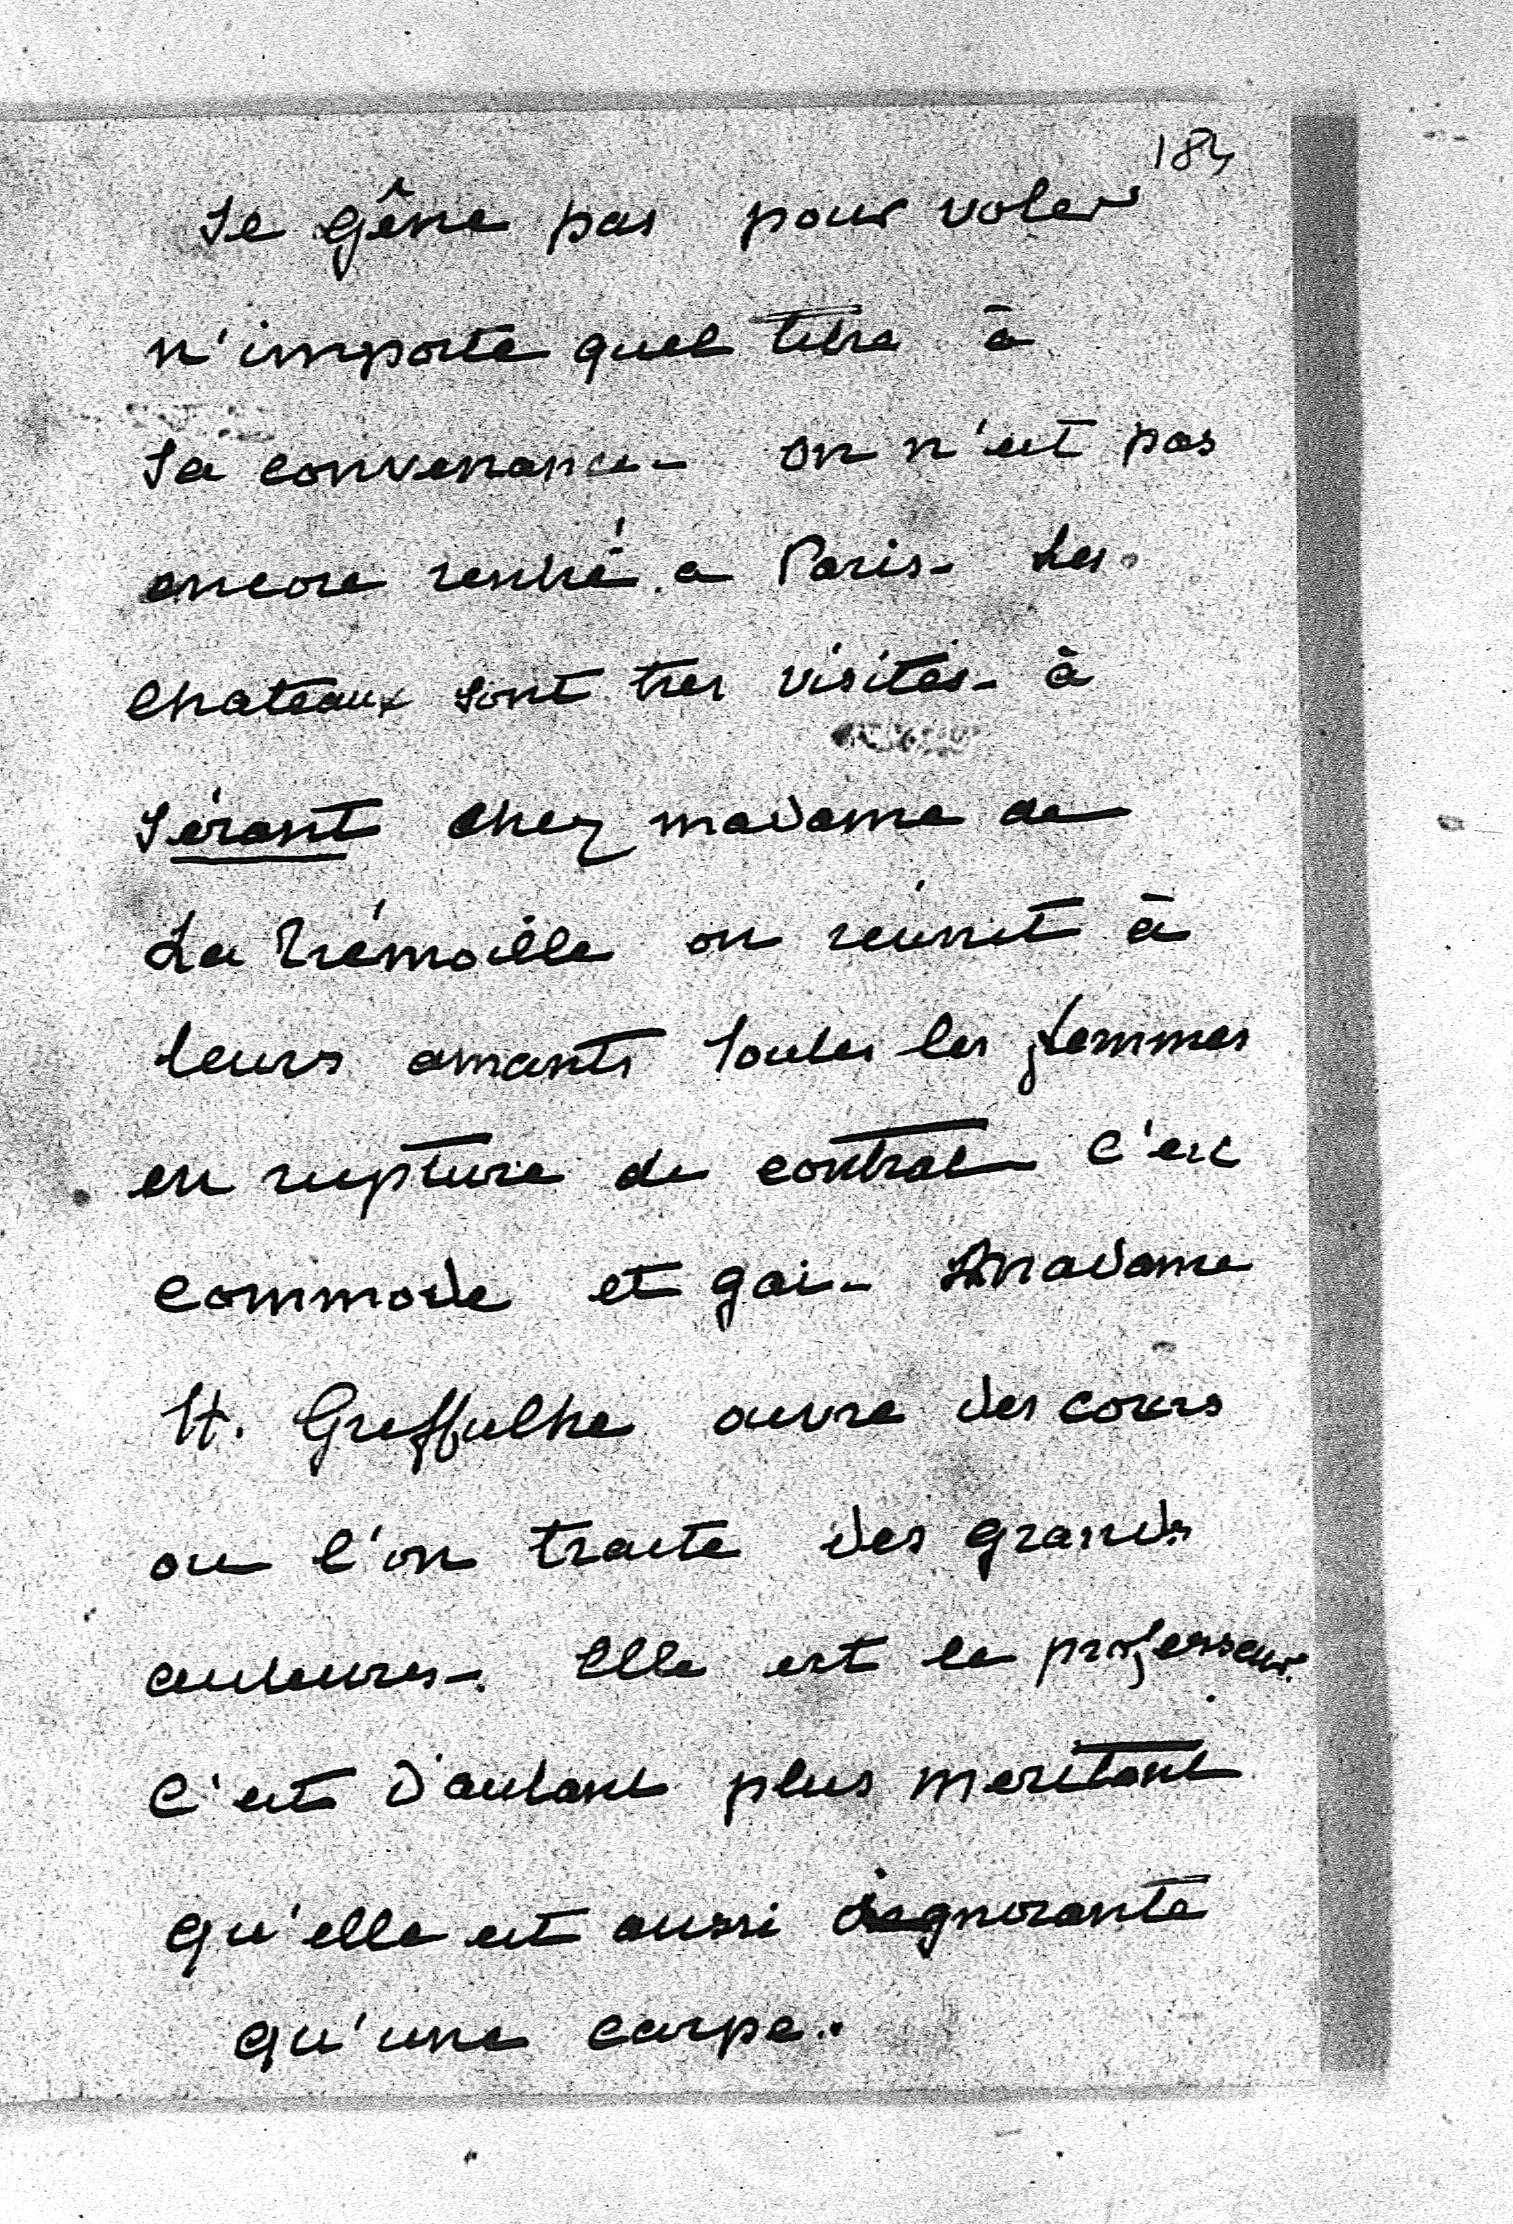 184
se gêne pas pour voler
n'importe quel titre à
sa convenance - on n'est pas
encore rentré a Paris - Les
chateaux sont tres visités - à
Sérant chez madame de
La Trémoille on réunit à
leurs amants toutes les femmes
en rupture de contrat c'est
commode et gai - Madame
H. Greffulhe ouvre des cours
ou l'on traite des grands
auteurs - Elle est le professeur.
C'est d'autant plus meritant
qu'elle est aussi ignorante
qu'une carpe.